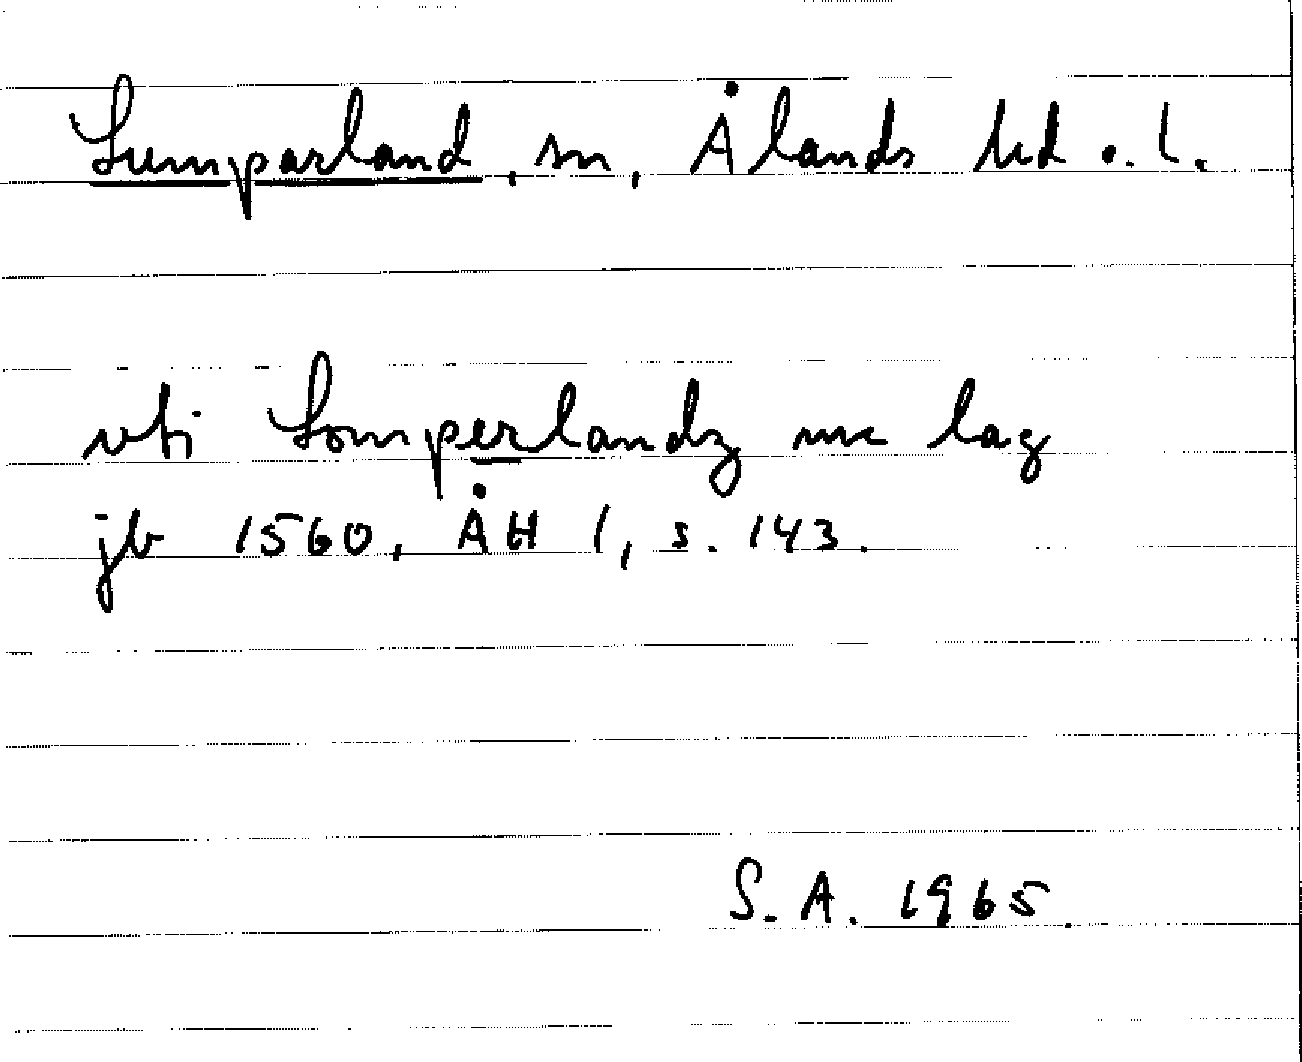 Lumparland, sn, Ålands hd o. l.
vti Lomperlandz lag
jb 1560, ÅH 1, s. 143.
S. A. 1965.